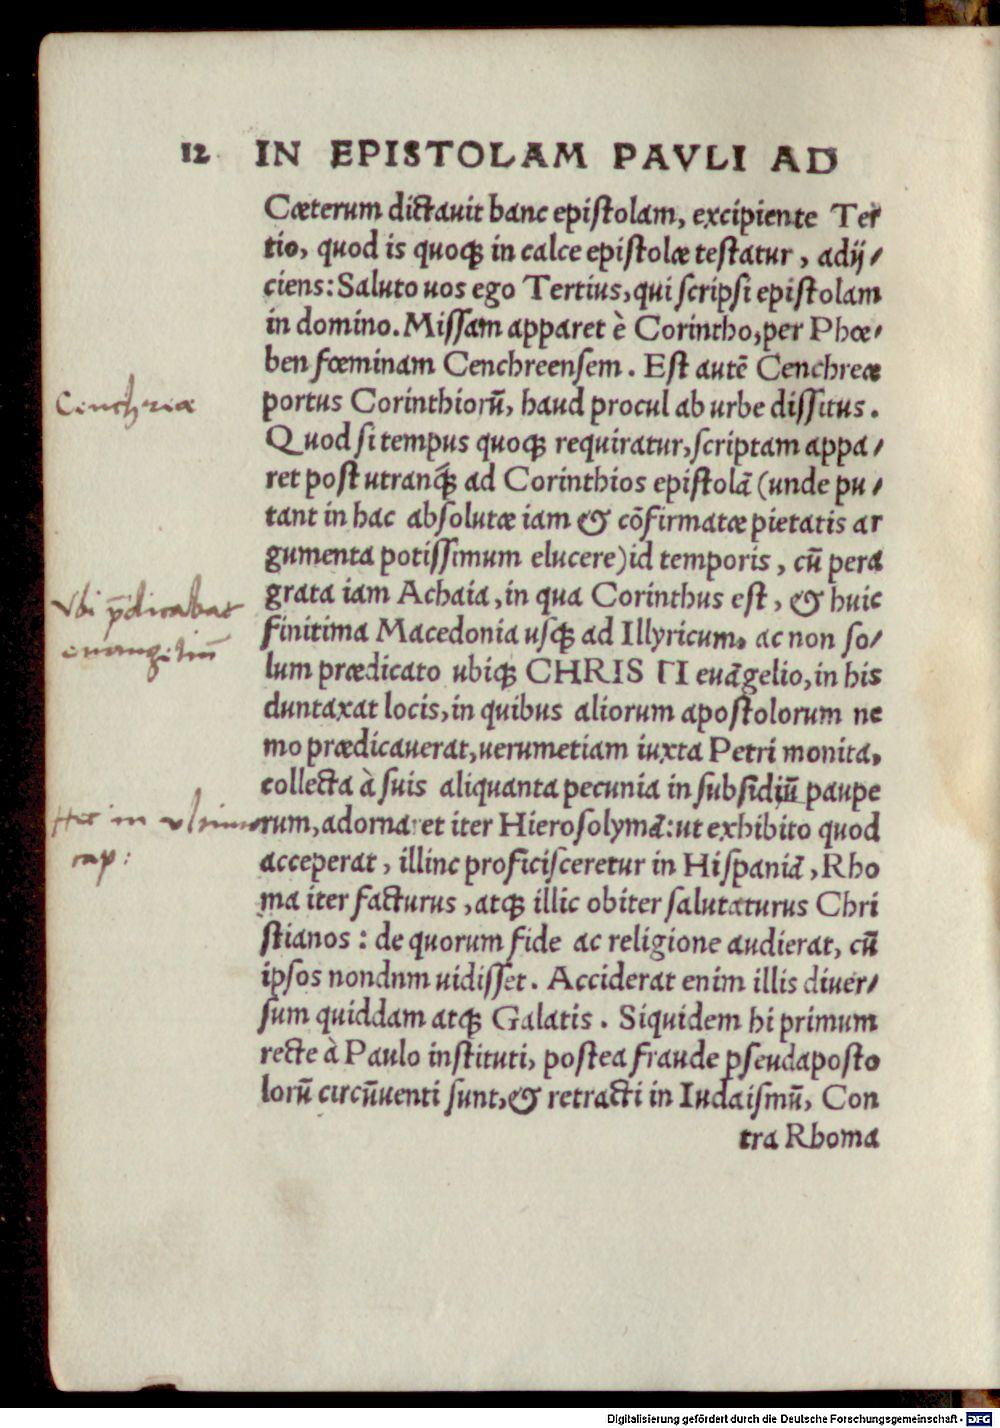 12 IN EPISTOLAM PAVLI AD
Cæterum dictauit hanc epistolam, excipiente Ter
tio, quod is quoqꝫ in calce epistolæ testatur, adij/
ciens: Saluto uos ego Tertius, qui scripsi epistolam
in domino. Missam apparet è Corintho, per Phœ/
ben fœminam Cenchreensem. Est autē Cenchreæ
Cenchreæ
portus Corinthiorū, haud procul ab urbe dissitus.
Quod si tempus quoqꝫ requiratur, scriptam appa/
ret post utranqꝫ ad Corinthios epistolā (unde pu/
tant in hac absolutæ iam & cōfirmatæ pietatis ar
gumenta potissimum elucere) id temporis, cū pera
grata iam Achaia, in qua Corinthus est, & huic
Vbi p̄dicabat
euangeliū
finitima Macedonia usqꝫ ad Illyricum, ac non so/
lum prædicato ubiqꝫ CHRISTI euāgelio, in his
duntaxat locis, in quibus aliorum apostolorum ne
mo prædicauerat, uerumetiam iuxta Petri monita,
collecta à suis aliquanta pecunia in subsidiū paupe
rum, adornaret iter Hierosolymā: ut exhibito quod
in vltimo
cap:
acceperat, illinc proficisceretur in Hispaniā, Rho
ma iter facturus, atqꝫ illic obiter salutaturus Chri
stianos: de quorum fide ac religione audierat, cū
ipsos nondnm uidisset. Acciderat enim illis diuer/
sum quiddam atqꝫ Galatis. Siquidem hi primum
recte à Paulo instituti, postea fraude pseudaposto
lorū circūuenti sunt, & retracti in Iudaismū, Con
tra Rhoma
Digitalisierung gefördert durch die Deutsche Forschungsgemeinschaft - DFG